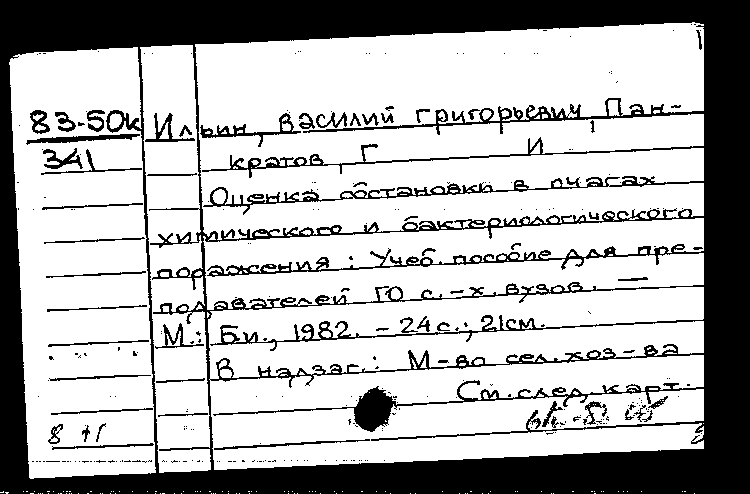 83-50к Ильин, Василий Григорьевич, Пан-
341 кратов, Г И
Оценка обстановки в очагах
химического и бактериологического
поражения : Учеб. пособие для пре-
подавателей ГО с.-х. вузов. —
М.: Б.и., 1982. - 24 с.; 21 см.
В надзаг.: М-во сел. хоз-ва
См. след. карт.
8 +1